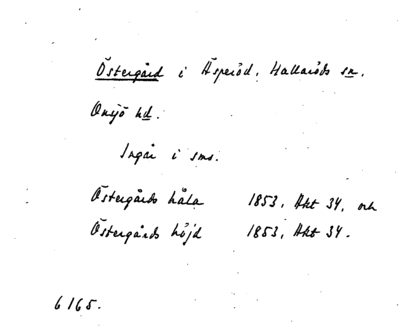 Östergård i Äsperöd, Hallaröds sn.
Onsjö hd.
Ingår i sms.
Östergårds håla 1853, Akt 34, och
Östergårds höjd 1853, Akt 34.
6165.